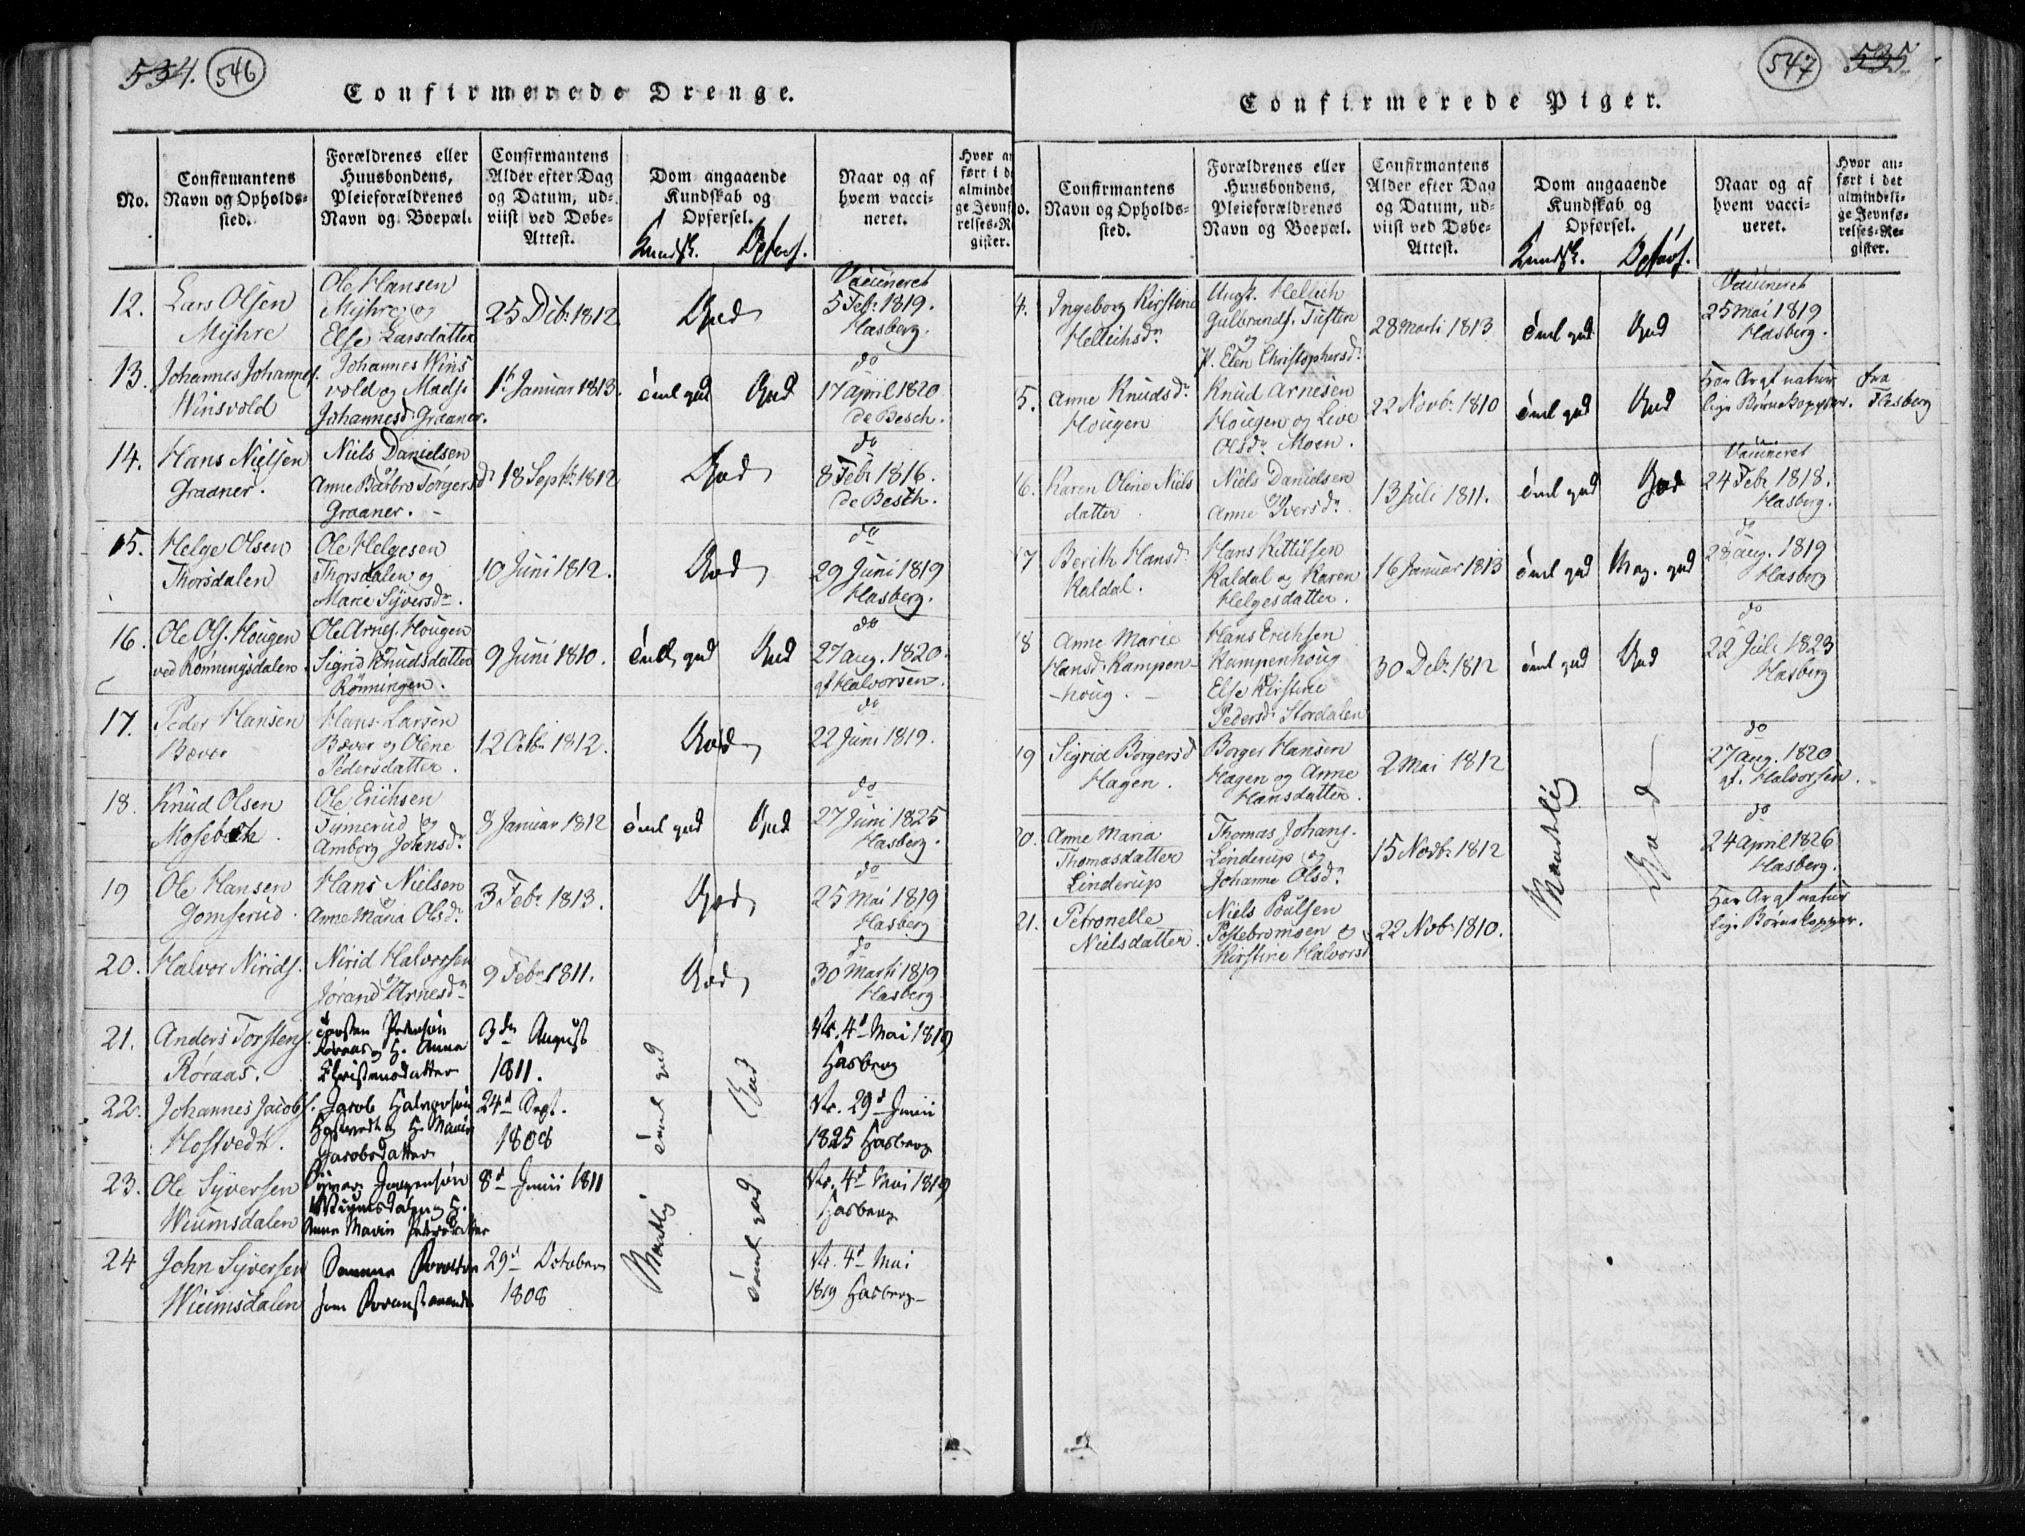 534. 546
Confirmerede Drenge.
No.
Confirmantens
Navn og Opholds-
sted.
Forældrenes eller
Huusbondens,
Pleieforældrenes
Navn og Boepæl.
Confirmantens
Alder efter Dag
og Datum, ud-
viist ved Døbe-
Attest.
Dom angaaende
Kundskab og
Opførsel.
Kundsk. Opførs.
Naar og af
hvem vacci-
neret.
12.
Lars Olsen
Myhre
Ole Hansen
Myhre og
Else Larsdatter
25 Dcb. 1812
God
Vaccineret
5 Febr. 1819.
Hasberg.
13.
Johannes Johannes.
Winsvold
Johannes Wins
vold og Mads.
Johannesd. Graaner.
1 Januar 1813.
Gud
do
17 april 1820
De Besch.
14.
Hans Nielsen
Graaner.
Niels Danielsen
og
Anne Barbro Torgersd.
Graaner.
18 Septbr. 1812
God
do
8 Febr 1816.
De Besch.
15.
Helge Olsen
Thorsdalen
Ole Helgesen
Thorsdalen og
Marie Syversdr.
10 Juni 1812.
God
do
29 Juni 1819
Hasberg.
16.
Ole Ols. Hougen
ved Rønningsdalen
Ole Arnes. Hougen
Sigrid Knudsdatter
Rønningen.
9 Juni 1810.
do
27 aug. 1820
gt Halvorsen.
17.
Peder Hansen
Bæver
Hans Larsen
Bæver og Olene
Pedersdatter.
12 Octbr 1812.
God
do
22 Juni 1819.
18.
Knud Olsen
Mosebek.
Ole Erichsen
Timerud og
Amborg Johnsdr.
8 Januar 1812
do
27 Juni 1825
Hasberg.
19
Ole Hansen
Jomfrud.
Hans Nielsen
og
Anne Maria Olsdr.
3 Febr. 1813.
God
do
25 Mai 1819
Hasberg
20.
Halvor Nirids.
Nirid Halvorsen
og
Jorand Arnesdr
9 Febr 1811.
God
do
30 Marti 1819
Hasberg
21.
Anders Torstens.
Røraas.
Torsten Pedersøn
Røraas og H. Anne
Christensdatter
3de August
1811.
Vc. 4d Mai 1819
Hasberg
22.
Johannes Jacobs.
Hostvedt.
Jacob Halvorsøn
Hostvedt og H. Marie
Jacobsdatter
24d Sept.
1808
Vc. 29d Junii
1825 Hasberg
23.
Ole Syversen
Wiumsdalen
Syver Jørgensøn
Wiumsdalen og H.
Anne Marie Pedersdatter
8d Junii 1811
Vc. 4d Mai 1819
Hasberg
24
John Syversen
Wiumsdalen
Samme Forældre
som Foranstaaende
29d October
1808
Maadelig
Vc. 4d Mai
1819 Hasberg
547 535
Confirmerede Piger.
Confirmantens
Navn og Opholds-
sted.
Forældrenes eller
Huusbondens,
Pleieforældrenes
Navn og Boepæl.
Confirmantens
Alder efter Dag
og Datum, ud-
viist ved Døbe-
Attest.
Dom angaaende
Kundskab og
Opførsel.
Kundsk. Opførs.
Naar og af
hvem vacci-
neret.
Hvor an-
ført i det
almindeli-
ge Jevnfø-
relses-Re-
gister.
4.
Ingeborg Kirstine
Hellichsdr
Ungk. Hellich
Gulbrands. Tuften
og
P. Elen Christophersdr.
28 Marti 1813
Vaccineret
25 Mai 1819
Hasberg.
5.
Anne Knudsdr
Hougen
Knud Arnesen
Hougen og Live
Olsdr Moen.
22 Novbr. 1810
Har havt natur
lige Børnekopper.
fra
Flesberg
6.
Karen Oline Niels
datter
Niels Danielsen
og
Anne Iversdr.
13 Juli 1811.
Vaccineret
24 Febr 1818.
Hasberg.
17
Bereth Hansd.
Kaldal.
Hans Kittilsen
Kaldal og Karen
Helgesdatter.
16 Januar 1813
do
28 aug. 1819
Hasberg
18
Anne Marie
Hansd. Kampen-
houg.
Hans Erichsen
Kampenhoug
og
Else Kirstine
Pedersd. Stordalen
30 Debr. 1812
do
22 Juli 1823
Hasberg
19
Sigrid Borgersd
Hagen.
Borger Hansen
Hagen og Anne
Hansdatter.
2 Mai 1812
do
27 aug. 1820
gt. Halvorsen.
20.
Anne Maria
Thomasdatter
Linderup
Thomas Johans.
Linderup og
Johanne Olsdr
15 Novbr. 1812
Maadelig
God
do
24 April 1826
Hasberg.
21.
Petronelle
Nielsdatter.
Niels Poulsen
Postebromoen og
Kirstine Halvorsd
22 Novbr 1810.
Har havt natur
lige Børnekopper.